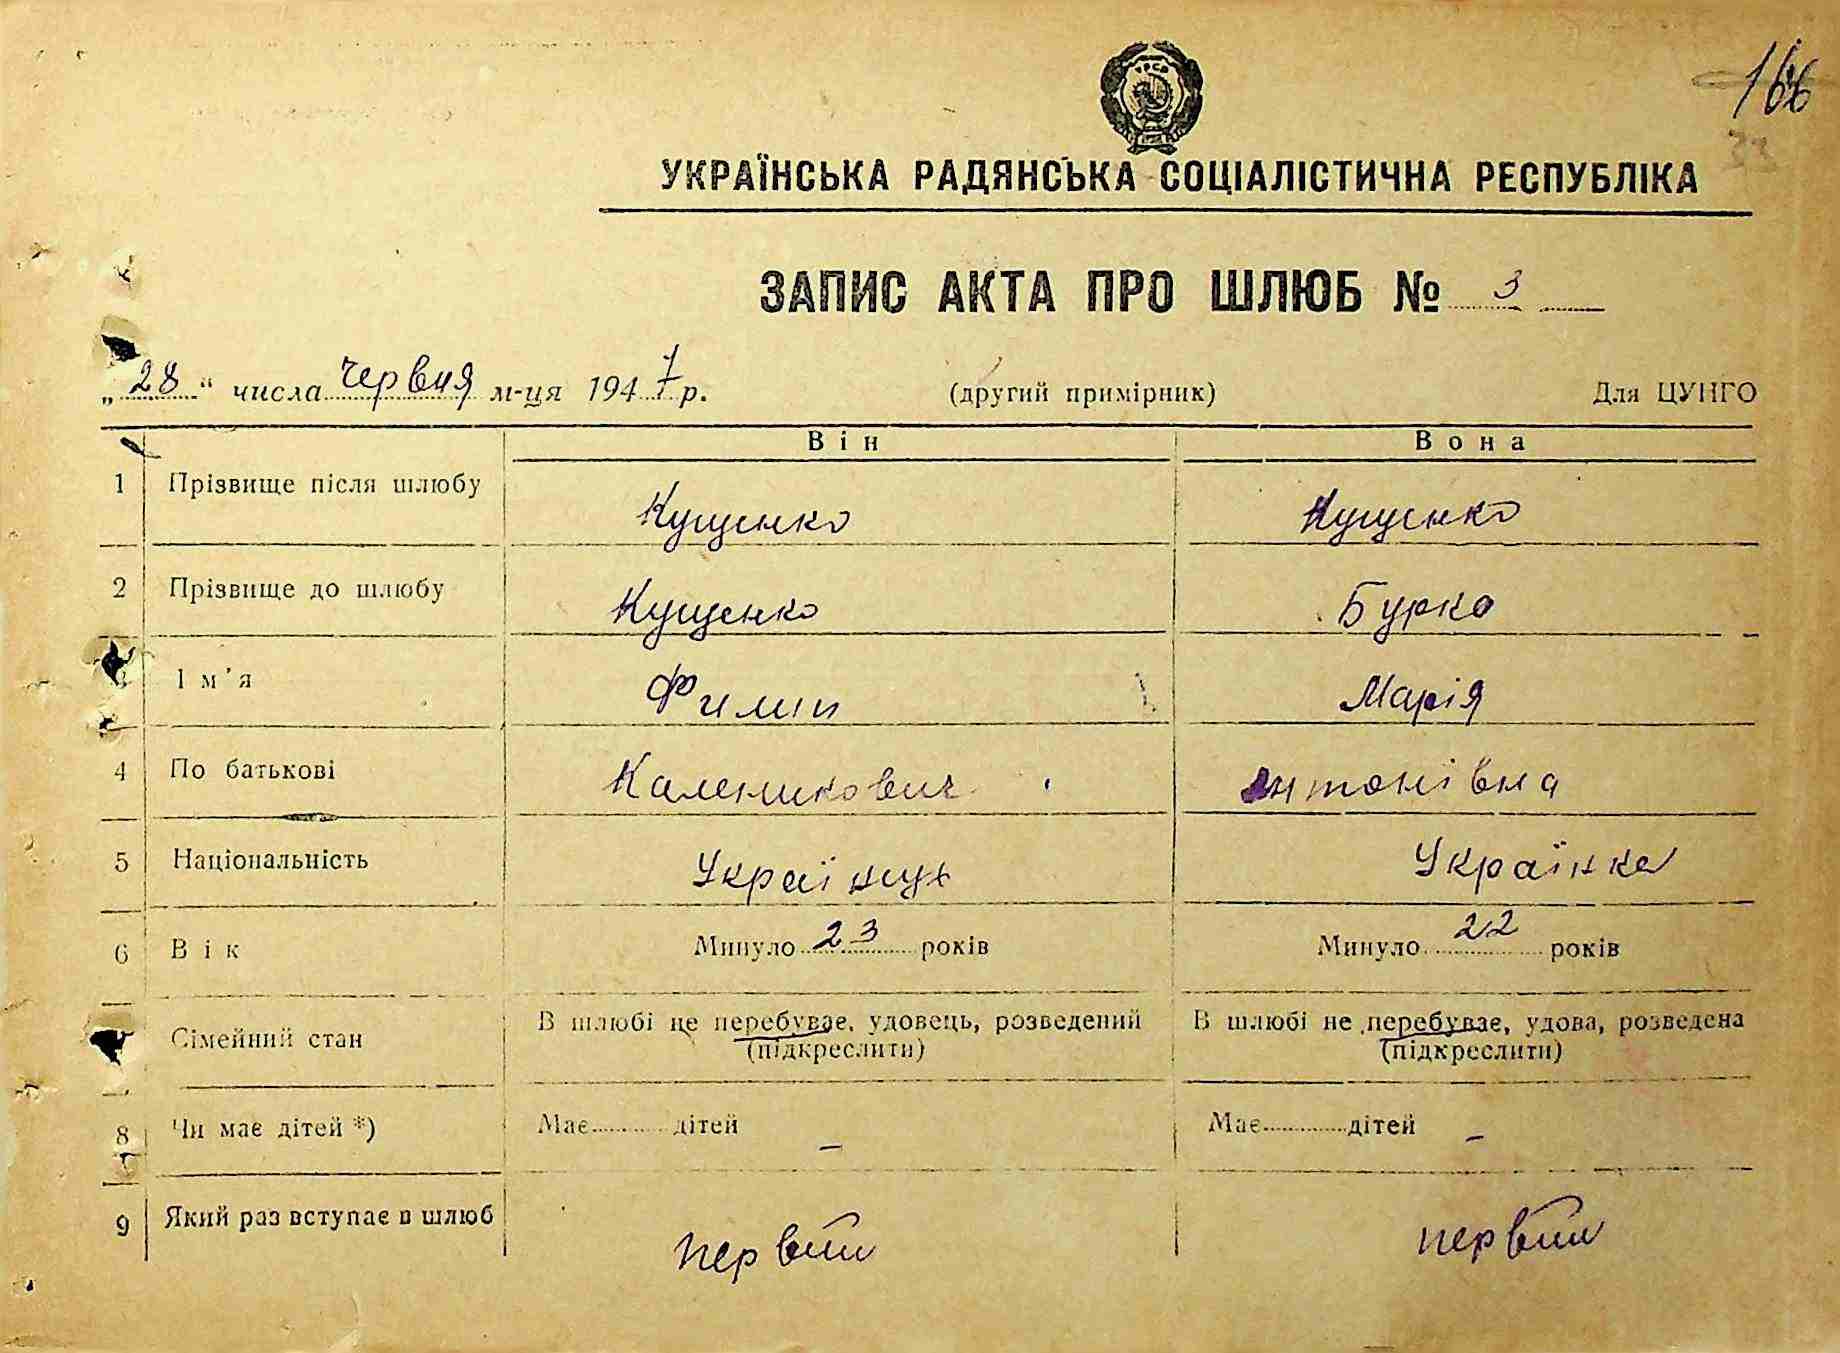 166
УРСР
УКРАЇНСЬКА РАДЯНСЬКА СОЦІАЛІСТИЧНА РЕСПУБЛІКА
ЗАПИС АКТА ПРО ШЛЮБ № 3
„28“ числа червня м-ця 1947 р. (другий примірник) Для ЦУНГО
Він Вона
1 Прізвище після шлюбу Кущенко Кущенко
2 Прізвище до шлюбу Кущенко Бурко
3 Ім'я Филип Марія
4 По батькові Каленикович Антонівна
5 Національність Українць Українка
6 Вік Минуло 23 років Минуло 22 років
Сімейний стан В шлюбі не перебуває, удовець, розведений В шлюбі не перебуває, удова, розведена
(підкреслити) (підкреслити)
8 Чи має дітей *) Має ... дітей – Має ... дітей –
9 Який раз вступає в шлюб первий первий